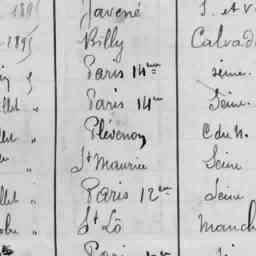 1891 Javené I. et V
1895 Billy Calvad
Paris 14me Seine.
llet " Paris 14me Seine.
llet " Plévenon C du N.
" St Maurice Seine
llet " Paris 12me Seine
obre " St Lô Manch
Paris